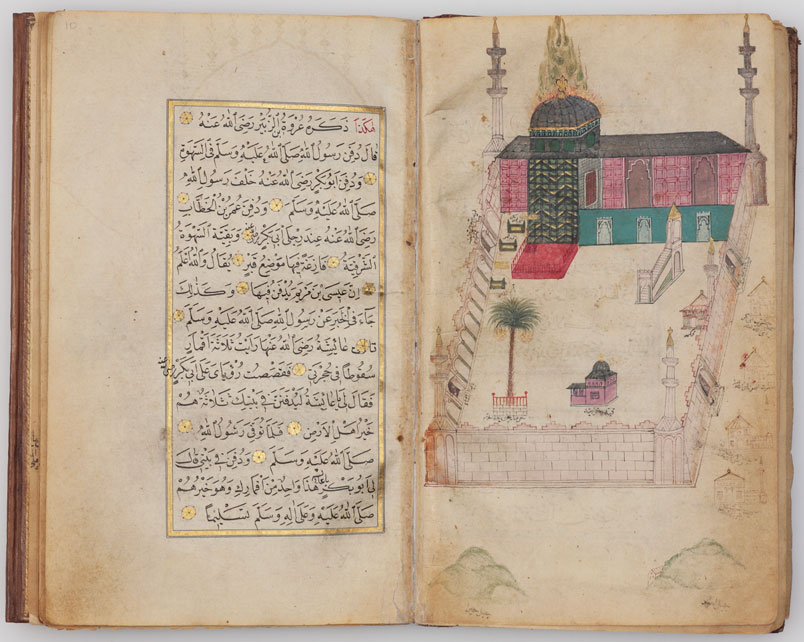 هٰكَذَا ذَكَرَ عُرْوَةُ بْنُ الزُّبَيْرِ رَضِيَ اللّٰهُ عَنْهُ
قَالَ دُفِنَ رَسُولُ اللّٰهِ صَلَّى اللّٰهُ عَلَيْهِ وَسَلَّمَ فِي السَّهْوَةِ
وَدُفِنَ اَبُو بَكْرٍ رَضِيَ اللّٰهُ عَنْهُ خَلْفَ رَسُولِ اللّٰهِ
صَلَّى اللّٰهُ عَلَيْهِ وَسَلَّمَ وَدُفِنَ عُمَرُ بْنُ الْخَطَّابِ
رَضِيَ اللّٰهُ عَنْهُ عِنْدَ رِجْلَيْ اَبِي بَكْرٍ وَبَقِيَتِ السَّهْوَةُ
الشَّرْقِيَّةُ فَارِغَةً فِيهَا مَوْضِعُ قَبْرٍ يُقَالُ وَاللّٰهُ اَعْلَمُ
اِنَّ عِيسَى بْنَ مَرْيَمَ يُدْفَنُ فِيهَا وَكَذٰلِكَ
جَاءَ فِي الْخَبَرِ عَنْ رَسُولِ اللّٰهِ صَلَّى اللّٰهُ عَلَيْهِ وَسَلَّمَ
قَالَتْ عَائِشَةُ رَضِيَ اللّٰهُ عَنْهَا رَاَيْتُ ثَلَاثَةَ اَقْمَارٍ
سُقُوطًا فِي حُجْرَتِي فَقَصَصْتُ رُؤْيَايَ عَلَى اَبِي بَكْرٍ
فَقَالَ لِي يَا عَائِشَةُ لَيُدْفَنَنَّ فِي بَيْتِكِ ثَلَاثَةٌ هُمْ
خَيْرُ اَهْلِ الْاَرْضِ فَلَمَّا تُوُفِّيَ رَسُولُ اللّٰهِ
صَلَّى اللّٰهُ عَلَيْهِ وَسَلَّمَ وَدُفِنَ فِي بَيْتِي قَالَ
لِي اَبُو بَكْرٍ هٰذَا وَاحِدٌ مِنْ اَقْمَارِكِ وَهُوَ خَيْرُهُمْ
صَلَّى اللّٰهُ عَلَيْهِ وَعَلٰى اٰلِهِ وَسَلَّمَ تَسْلِيمًا